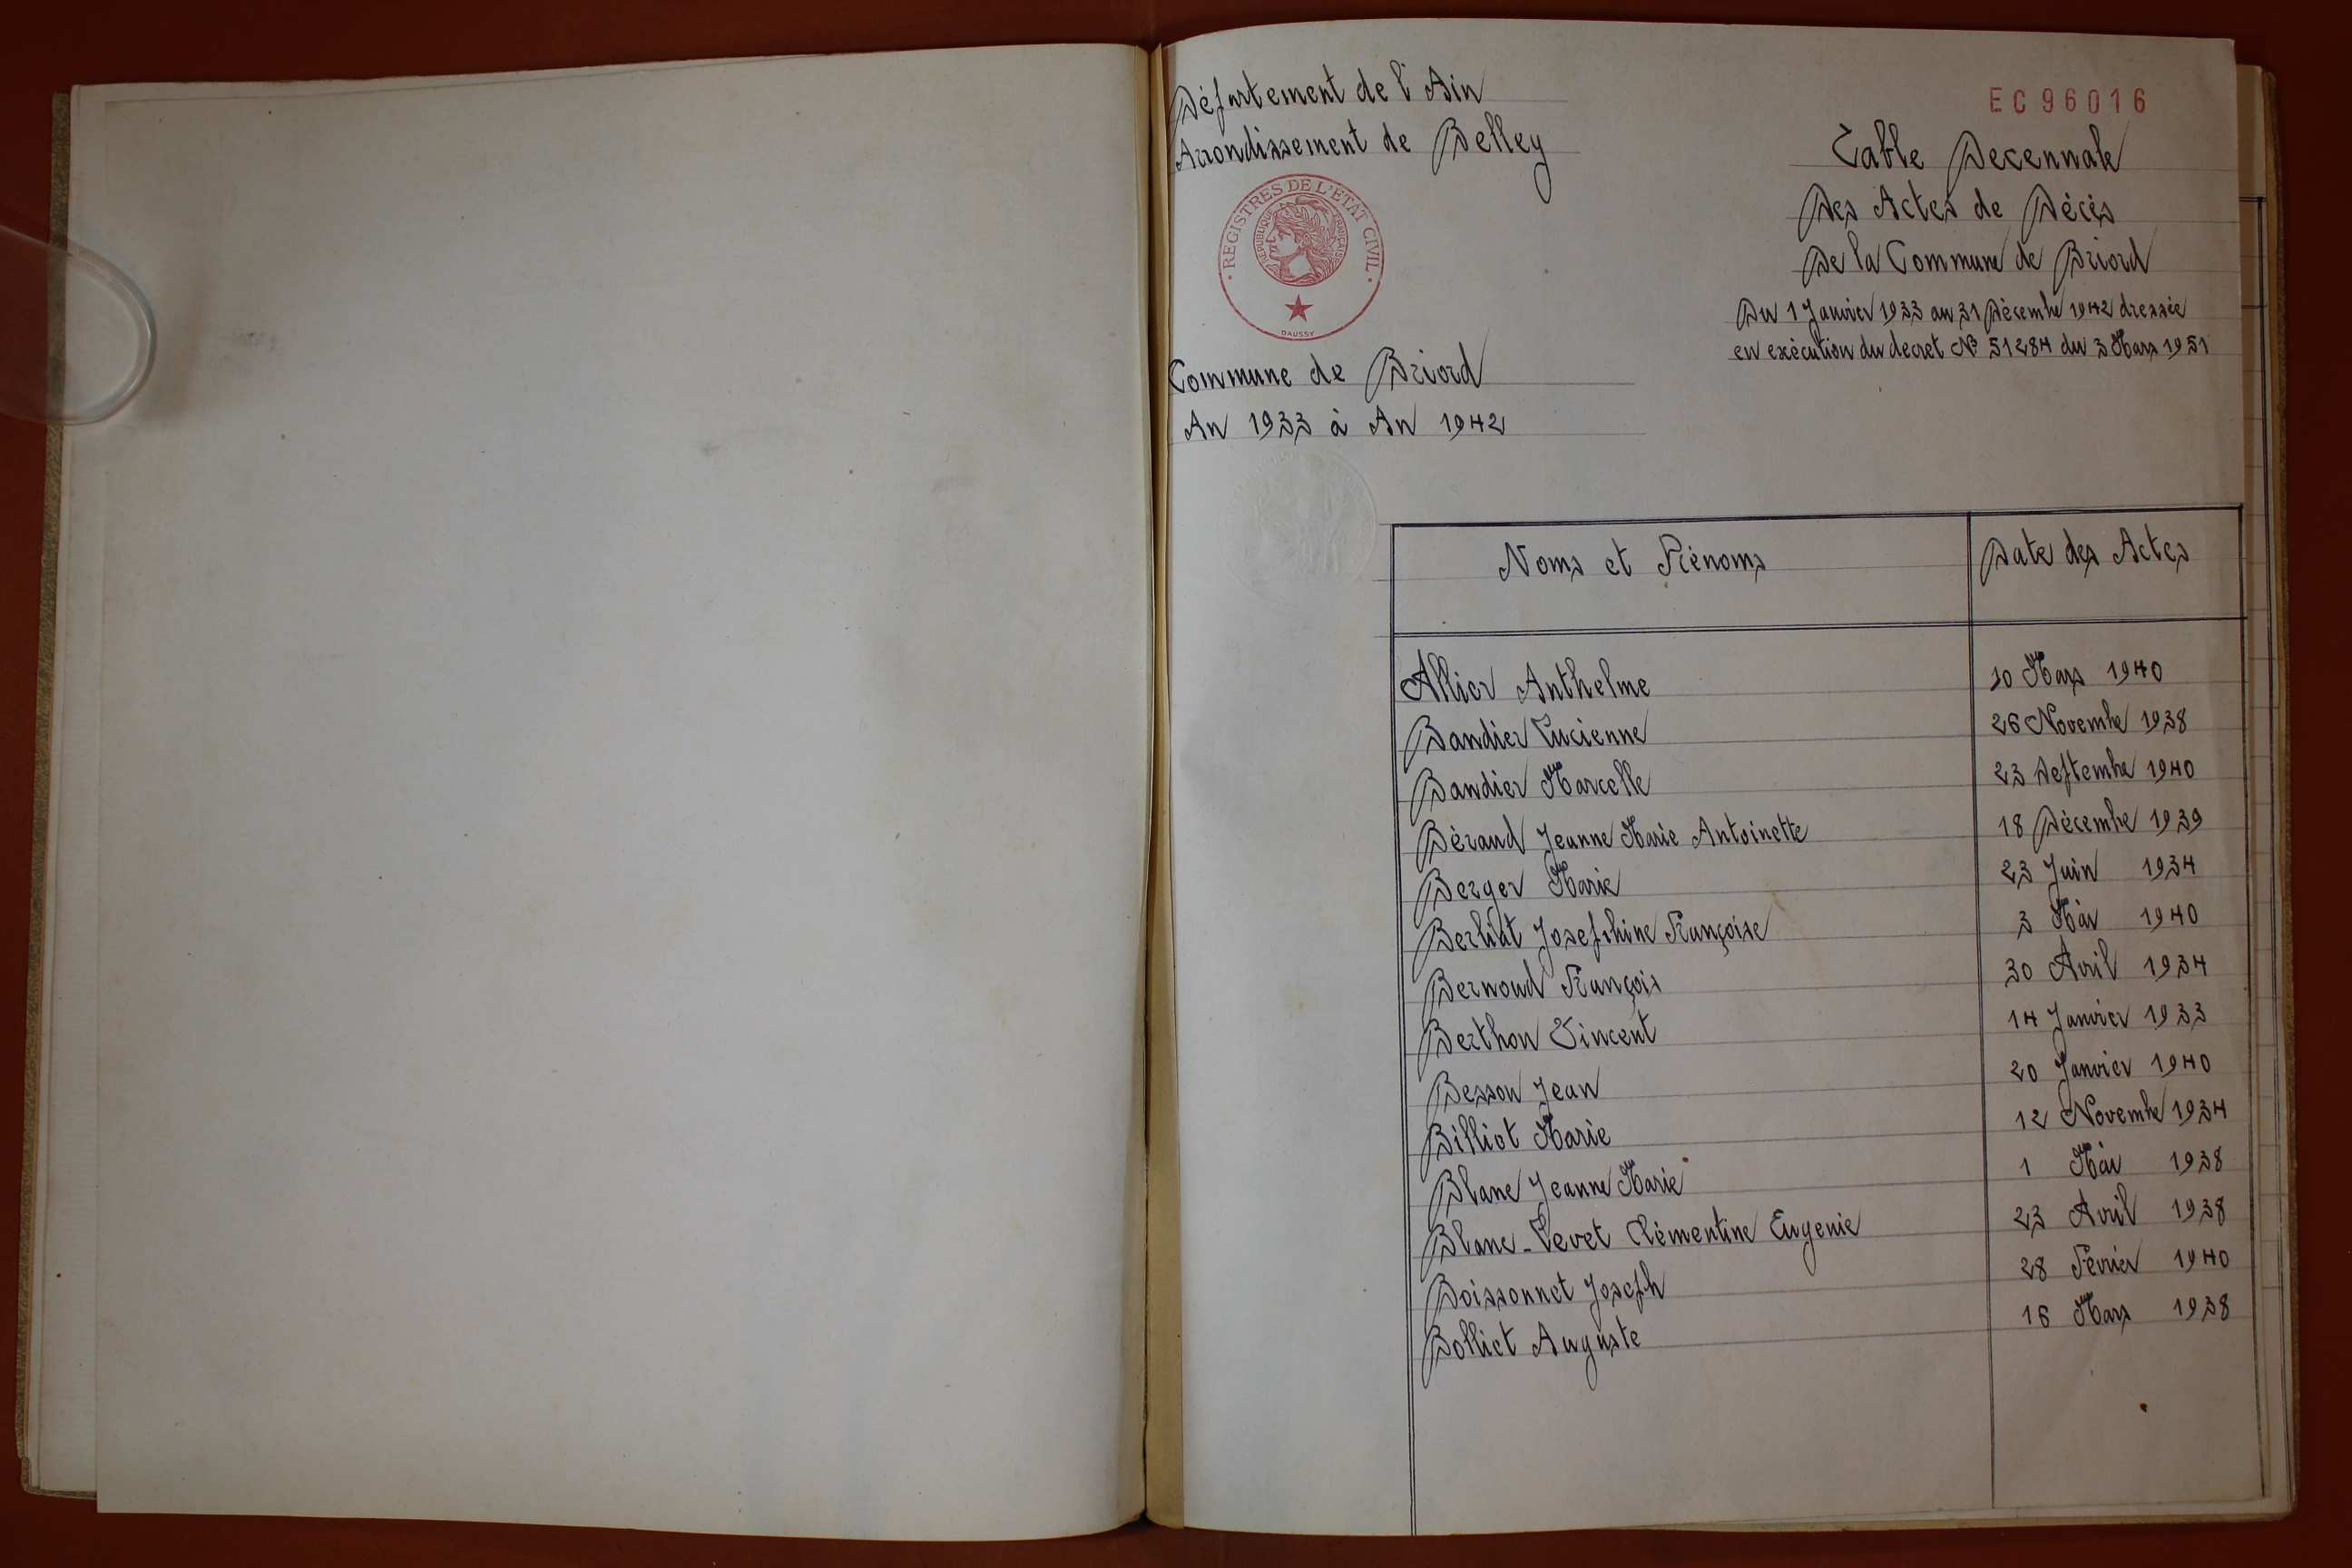 Département de l'Ain
Arrondissement de Belley
REGISTRES DE L'ETAT CIVIL
REPUBLIQUE FRANÇAISE
DAUSSY
Commune de Briord
An 1933 à An 1942
EC96016
Table Decennale
Des Actes de Décès
De la Commune de Briord
Du 1 Janvier 1933 au 31 Décembre 1942 dressée
en exécution du decret No 51284 du 3 Mars 1951
Noms et Prénoms Date des Actes
Allier Anthelme 10 Mars 1940
Bandier Lucienne 26 Novembre 1938
Bandier Marcelle 23 Septembre 1940
Béraud Jeanne Marie Antoinette 18 Décembre 1939
Berger Marie 23 Juin 1934
Berliat Josephine Françoise 3 Mai 1940
Bernoud François 30 Avril 1934
Berthon Vincent 14 Janvier 1933
Besson Jean 20 Janvier 1940
Billiet Marie 12 Novembre 1934
Blanc Jeanne Marie 1 Mai 1938
Blanc-Levet Clémentine Eugenie 23 Avril 1938
Boissonnet Joseph 28 Février 1940
Bolliet Auguste 16 Mars 1938